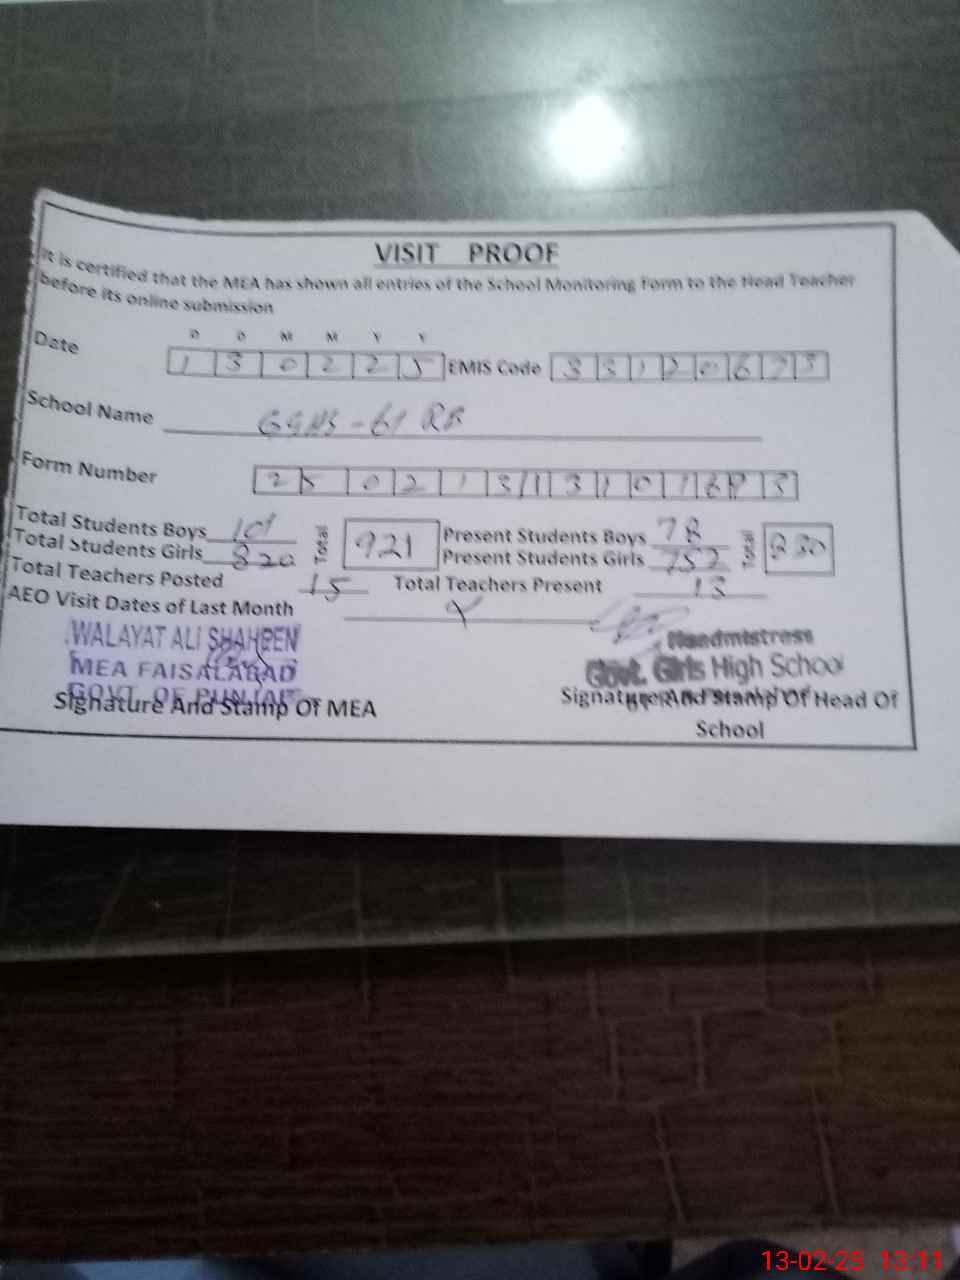 VISIT PROOF
It is certified that the MEA has shown all entries of the School Monitoring Form to the Head Teacher
before its online submission
D D M M Y Y
Date 1 3 0 2 2 5 EMIS Code 3 3 1 2 0 6 7 3
School Name GGHS-61 RB
Form Number
Total Students Boys 101 Total 921 Present Students Boys 78 Total 830
Total Students Girls 820 Present Students Girls 752
Total Teachers Posted 15 Total Teachers Present 13
AEO Visit Dates of Last Month
WALAYAT ALI SHAHEEN Headmistress
MEA FAISALABAD Govt. Girls High School
GOVT. OF PUNJAB
Signature And Stamp Of MEA Signature And Stamp Of Head Of
School
13-02-25 13:11